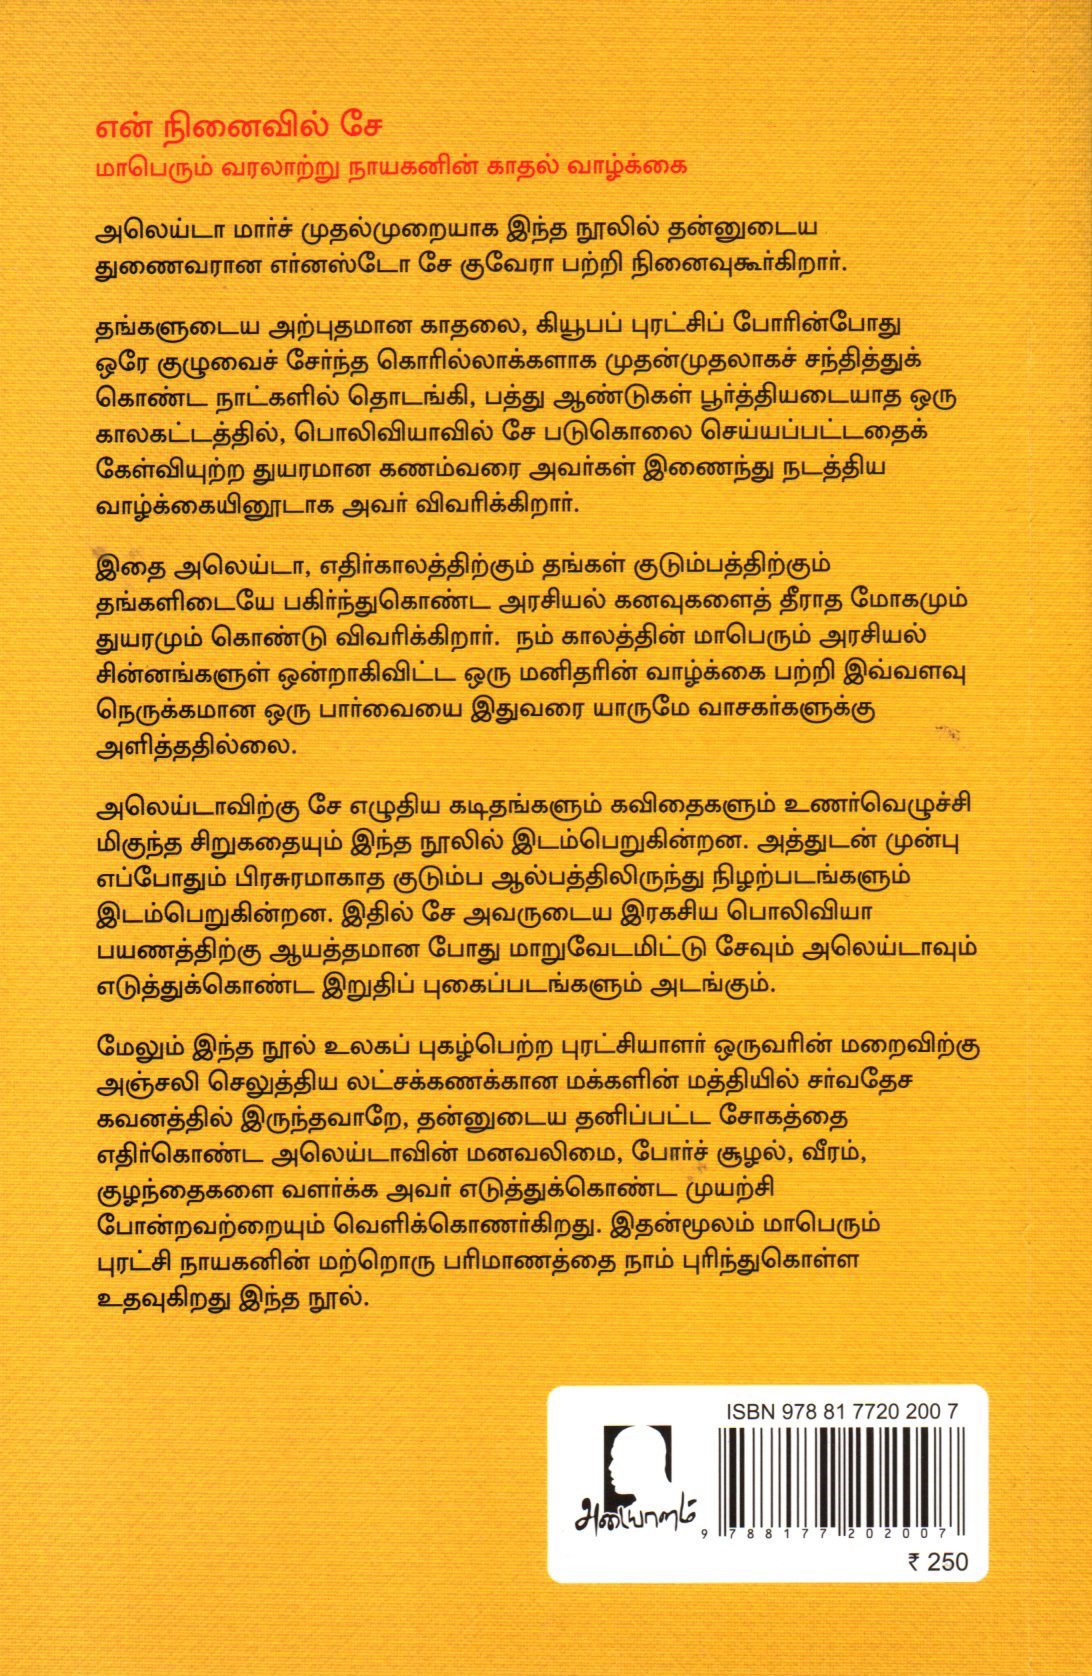 என் நினைவில் சே
மாபெரும் வரலாற்று நாயகனின் காதல் வாழ்க்கை
அலெய்டா மார்ச் முதல்முறையாக இந்த நூலில் தன்னுடைய
துணைவரான எர்னஸ்டோ சே குவேரா பற்றி நினைவுகூர்கிறார்.
தங்களுடைய அற்புதமான காதலை, கியூபப் புரட்சிப் போரின்போது
ஒரே குழுவைச் சேர்ந்த கொரில்லாக்களாக முதன்முதலாகச் சந்தித்துக்
கொண்ட நாட்களில் தொடங்கி, பத்து ஆண்டுகள் பூர்த்தியடையாத ஒரு
காலகட்டத்தில், பொலிவியாவில் சே படுகொலை செய்யப்பட்டதைக்
கேள்வியுற்ற துயரமான கணம்வரை அவர்கள் இணைந்து நடத்திய
வாழ்க்கையினூடாக அவர் விவரிக்கிறார்.
இதை அலெய்டா, எதிர்காலத்திற்கும் தங்கள் குடும்பத்திற்கும்
தங்களிடையே பகிர்ந்துகொண்ட அரசியல் கனவுகளைத் தீராத மோகமும்
துயரமும் கொண்டு விவரிக்கிறார். நம் காலத்தின் மாபெரும் அரசியல்
சின்னங்களுள் ஒன்றாகிவிட்ட ஒரு மனிதரின் வாழ்க்கை பற்றி இவ்வளவு
நெருக்கமான ஒரு பார்வையை இதுவரை யாருமே வாசகர்களுக்கு
அளித்ததில்லை.
அலெய்டாவிற்கு சே எழுதிய கடிதங்களும் கவிதைகளும் உணர்வெழுச்சி
மிகுந்த சிறுகதையும் இந்த நூலில் இடம்பெறுகின்றன. அத்துடன் முன்பு
எப்போதும் பிரசுரமாகாத குடும்ப ஆல்பத்திலிருந்து நிழற்படங்களும்
இடம்பெறுகின்றன. இதில் சே அவருடைய இரகசிய பொலிவியா
பயணத்திற்கு ஆயத்தமான போது மாறுவேடமிட்டு சேவும் அலெய்டாவும்
எடுத்துக்கொண்ட இறுதிப் புகைப்படங்களும் அடங்கும்.
மேலும் இந்த நூல் உலகப் புகழ்பெற்ற புரட்சியாளர் ஒருவரின் மறைவிற்கு
அஞ்சலி செலுத்திய லட்சக்கணக்கான மக்களின் மத்தியில் சர்வதேச
கவனத்தில் இருந்தவாறே, தன்னுடைய தனிப்பட்ட சோகத்தை
எதிர்கொண்ட அலெய்டாவின் மனவலிமை, போர்ச் சூழல், வீரம்,
குழந்தைகளை வளர்க்க அவர் எடுத்துக்கொண்ட முயற்சி
போன்றவற்றையும் வெளிக்கொணர்கிறது. இதன்மூலம் மாபெரும்
புரட்சி நாயகனின் மற்றொரு பரிமாணத்தை நாம் புரிந்துகொள்ள
உதவுகிறது இந்த நூல்.
ISBN 978 81 7720 200 7
அடையாளம்
9 788177 202007
₹ 250